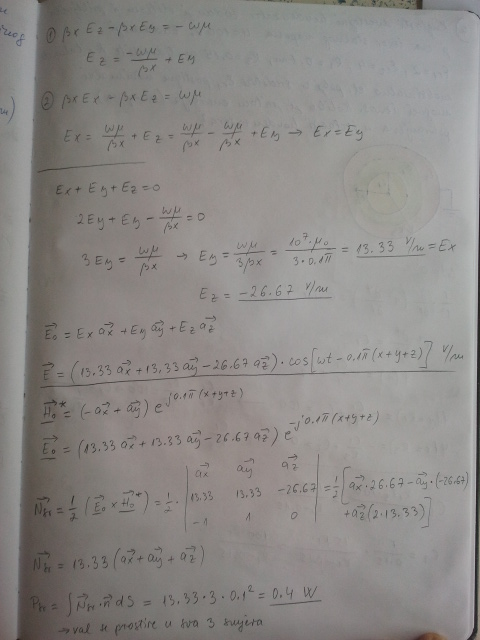 nog
m)
① βx Ez - βx Ey = -ωμ
Ez = -ωμ/βx + Ey
② βx Ex - βx Ez = ωμ
Ex = ωμ/βx + Ez = ωμ/βx - ωμ/βx + Ey → Ex = Ey
Ex + Ey + Ez = 0
2Ey + Ey - ωμ/βx = 0
3Ey = ωμ/βx → Ey = ωμ/3βx = 10⁷·μ₀/3·0.1π = 13.33 V/m = Ex
Ez = -26.67 V/m
E₀⃗ = Ex ax⃗ + Ey ay⃗ + Ez az⃗
E⃗ = (13.33 ax⃗ + 13.33 ay⃗ - 26.67 az⃗) · cos[ωt - 0.1π(x+y+z)] V/m
H₀⃗* = (-ax⃗ + ay⃗) e^{j0.1π(x+y+z)}
E₀⃗ = (13.33 ax⃗ + 13.33 ay⃗ - 26.67 az⃗) e^{-j0.1π(x+y+z)}
Nsr⃗ = 1/2 (E₀⃗ × H₀⃗*) = 1/2 · | ax⃗ ay⃗ az⃗ | 13.33 13.33 -26.67 | -1 1 0 | = 1/2 [ax⃗·26.67 - ay⃗·(-26.67) + az⃗(2·13.33)]
Nsr⃗ = 13.33 (ax⃗ + ay⃗ + az⃗)
Psr = ∫ Nsr⃗·n⃗ dS = 13.33·3·0.1² = 0.4 W
→ val se prostire u sva 3 smjera